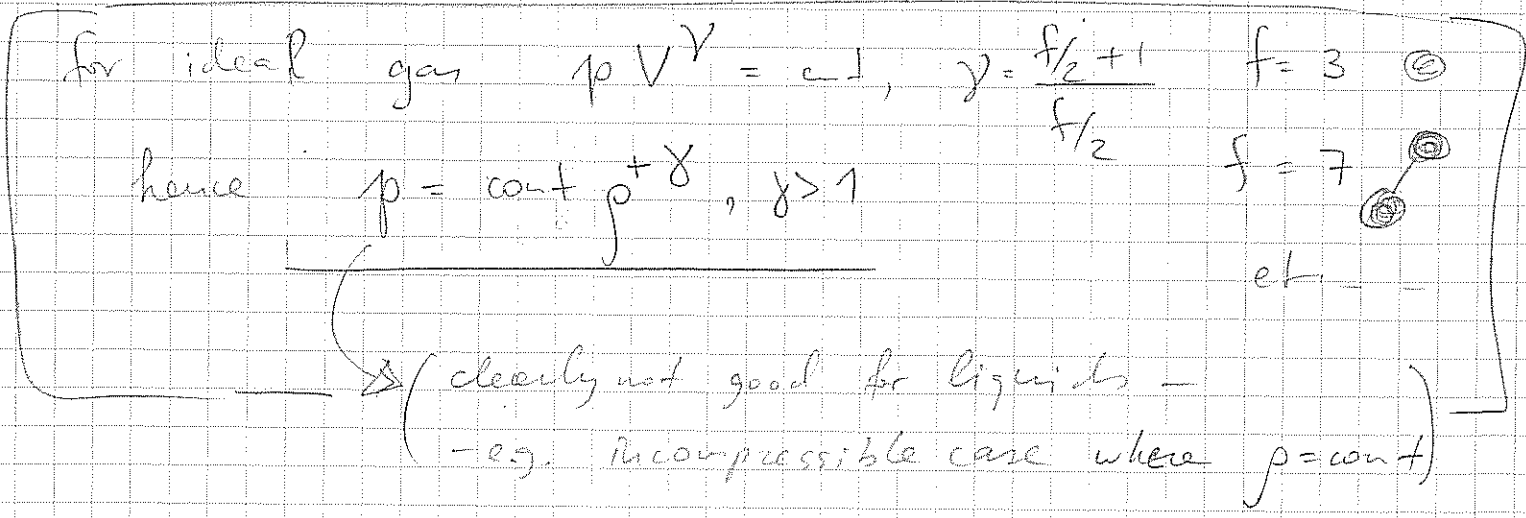 for ideal gas p V^γ = cnst, γ = (f/2 + 1)/(f/2) f = 3
hence p = const ρ^{+γ}, γ > 1 f = 7
etc _ _
(clearly not good for liquids –
– e.g. incompressible case where ρ = const)